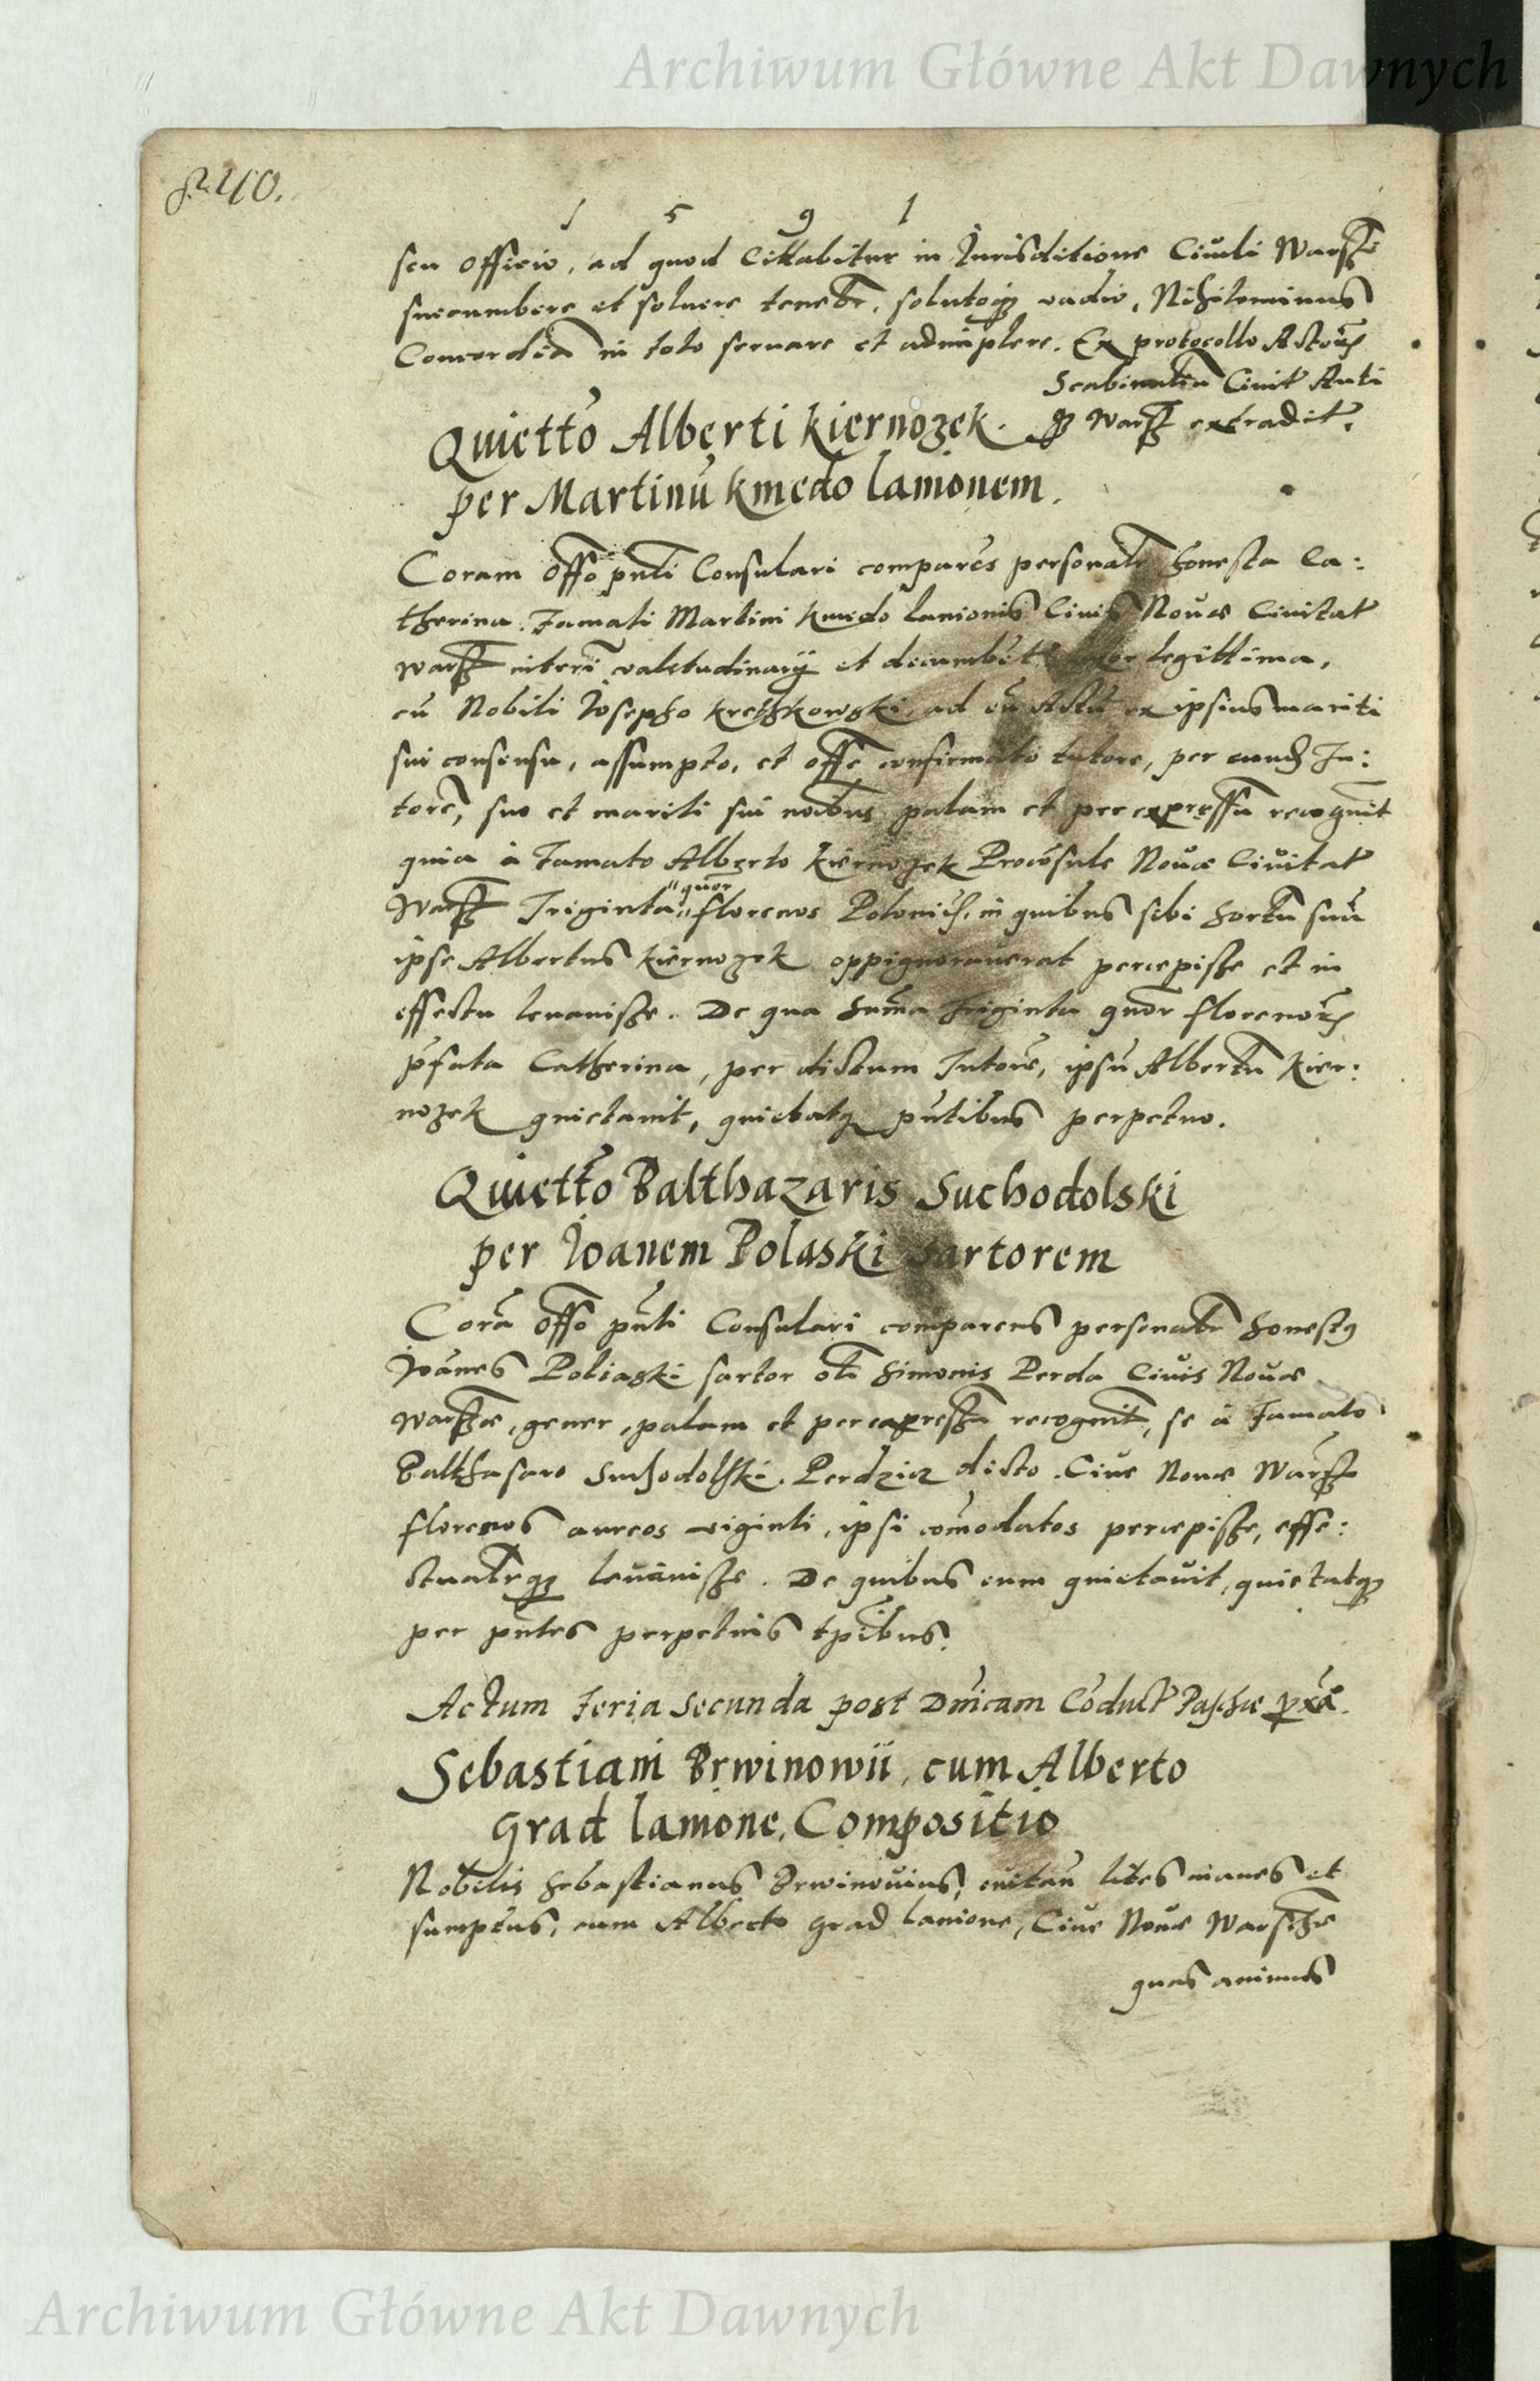 Archiwum Główne Akt Dawnych
p. 240.
1 5 9 1
seu officio, ad quod Cittabitur in Jurisditione Ciuili Warsße
succumbere et soluere tenebr, solutoq vadio, Nihilominus
Concordia in toto seruare et adimplere. Ex protocollo Actor
Scabinaliu Ciuit Anti
q Warß extradit.
Quietto Alberti Kiernozek.
per Martinu Kmedo lanionem.
Coram offo pnti Consulari compares personalr honesta Ca:
therina. Famati Martini Kmedo lanionis Ciuis Nouæ Ciuitat
Warß interi valetudinarij et decumbet uxor legittima,
cu Nobili Josepho Kretzkowski, ad cu Actu ex ipsius mariti
sui consensu, assumpto, et offe confirmato tutore, per eund Tu:
tore, suo et mariti sui noibus palam et per expressu recognuit
quia à Famato Alberto Kiernozek Procosule Nouæ Ciuitat
Warß Triginta "quor" florenos Polonich, in quibus sibi hortu suu
ipse Albertus Kiernozek oppignorauerat percepisße et in
effectu leuauisße. De qua suma triginta quor florenor
pfata Catherina, per dictum Tutore, ipsu Albertu Kier:
nozek quietauit, quietatq pntibus perpetuo.
Quietto Balthazaris Suchodolski
per Joanem Polaski sartorem
Cora offo pnti Consulari comparens personalr honest9
Joanes Poliaski sartor oli Simonis Perda Ciuis Nouæ
Warßæ, gener, palam et per expresße recognuit, se à Famato
Balthasaro Suchodolski. Perdzicz dicto. Ciue Nouæ Warß
florenos aureos viginti, ipsi comodatos percepisße, effe:
ctualrq leuauisße. De quibus eum quietauit, quietatq
per pntes perpetuis tpibus.
Actum Feria secunda post Dnicam Coduct Paschæ pxa.
Sebastiani Brwinowii, cum Alberto
Grad lanione. Compositio
Nobilis Sebastianus Brwinouius, euitan lites inanes et
sumptus, cum Alberto Grad lanione, Ciue Nouæ Warsße
quas animus
Archiwum Główne Akt Dawnych